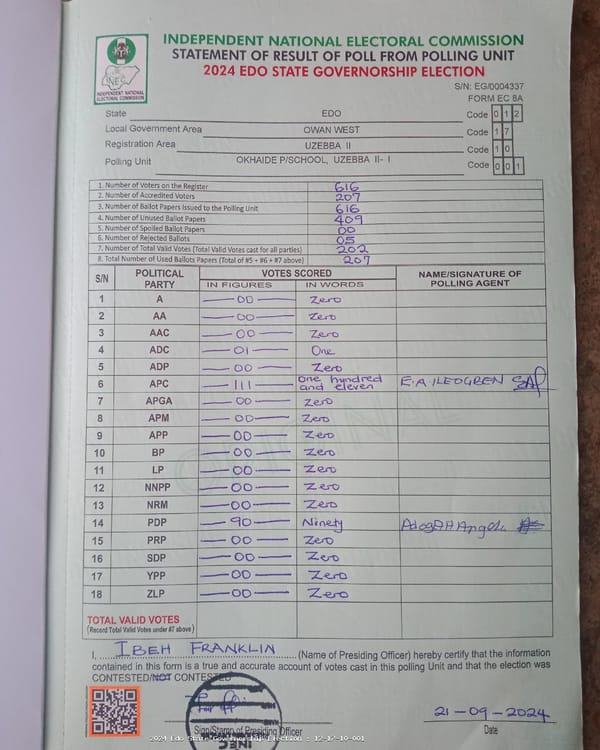 INDEPENDENT NATIONAL ELECTORAL COMMISSION
STATEMENT OF RESULT OF POLL FROM POLLING UNIT
2024 EDO STATE GOVERNORSHIP ELECTION
INEC
INDEPENDENT NATIONAL ELECTORAL COMMISSION
S/N: EG/0004337
FORM EC 8A
State EDO Code 0 1 2
Local Government Area OWAN WEST Code 1 7
Registration Area UZEBBA II Code 1 0
Polling Unit OKHAIDE P/SCHOOL, UZEBBA II- I Code 0 0 1
1. Number of Voters on the Register 616
2. Number of Accredited Voters 207
3. Number of Ballot Papers Issued to the Polling Unit 616
4. Number of Unused Ballot Papers 409
5. Number of Spoiled Ballot Papers 00
6. Number of Rejected Ballots 05
7. Number of Total Valid Votes (Total Valid Votes cast for all parties) 202
8. Total Number of Used Ballots Papers (Total of #5 + #6 + #7 above) 207
S/N POLITICAL PARTY VOTES SCORED NAME/SIGNATURE OF POLLING AGENT
IN FIGURES IN WORDS
1 A 00 Zero
2 AA 00 Zero
3 AAC 00 Zero
4 ADC 01 One
5 ADP 00 Zero
6 APC 111 One hundred and eleven E.A ILEOGBEN
7 APGA 00 Zero
8 APM 00 Zero
9 APP 00 Zero
10 BP 00 Zero
11 LP 00 Zero
12 NNPP 00 Zero
13 NRM 00 Zero
14 PDP 90 Ninety
15 PRP 00 Zero
16 SDP 00 Zero
17 YPP 00 Zero
18 ZLP 00 Zero
TOTAL VALID VOTES
(Record Total Valid Votes under #7 above)
I, IBEH FRANKLIN (Name of Presiding Officer) hereby certify that the information
contained in this form is a true and accurate account of votes cast in this polling Unit and that the election was
CONTESTED/NOT CONTESTED
21-09-2024
Sign/Stamp of Presiding Officer
Date
INEC
2024 Edo State Governorship Election : 12-17-10-001